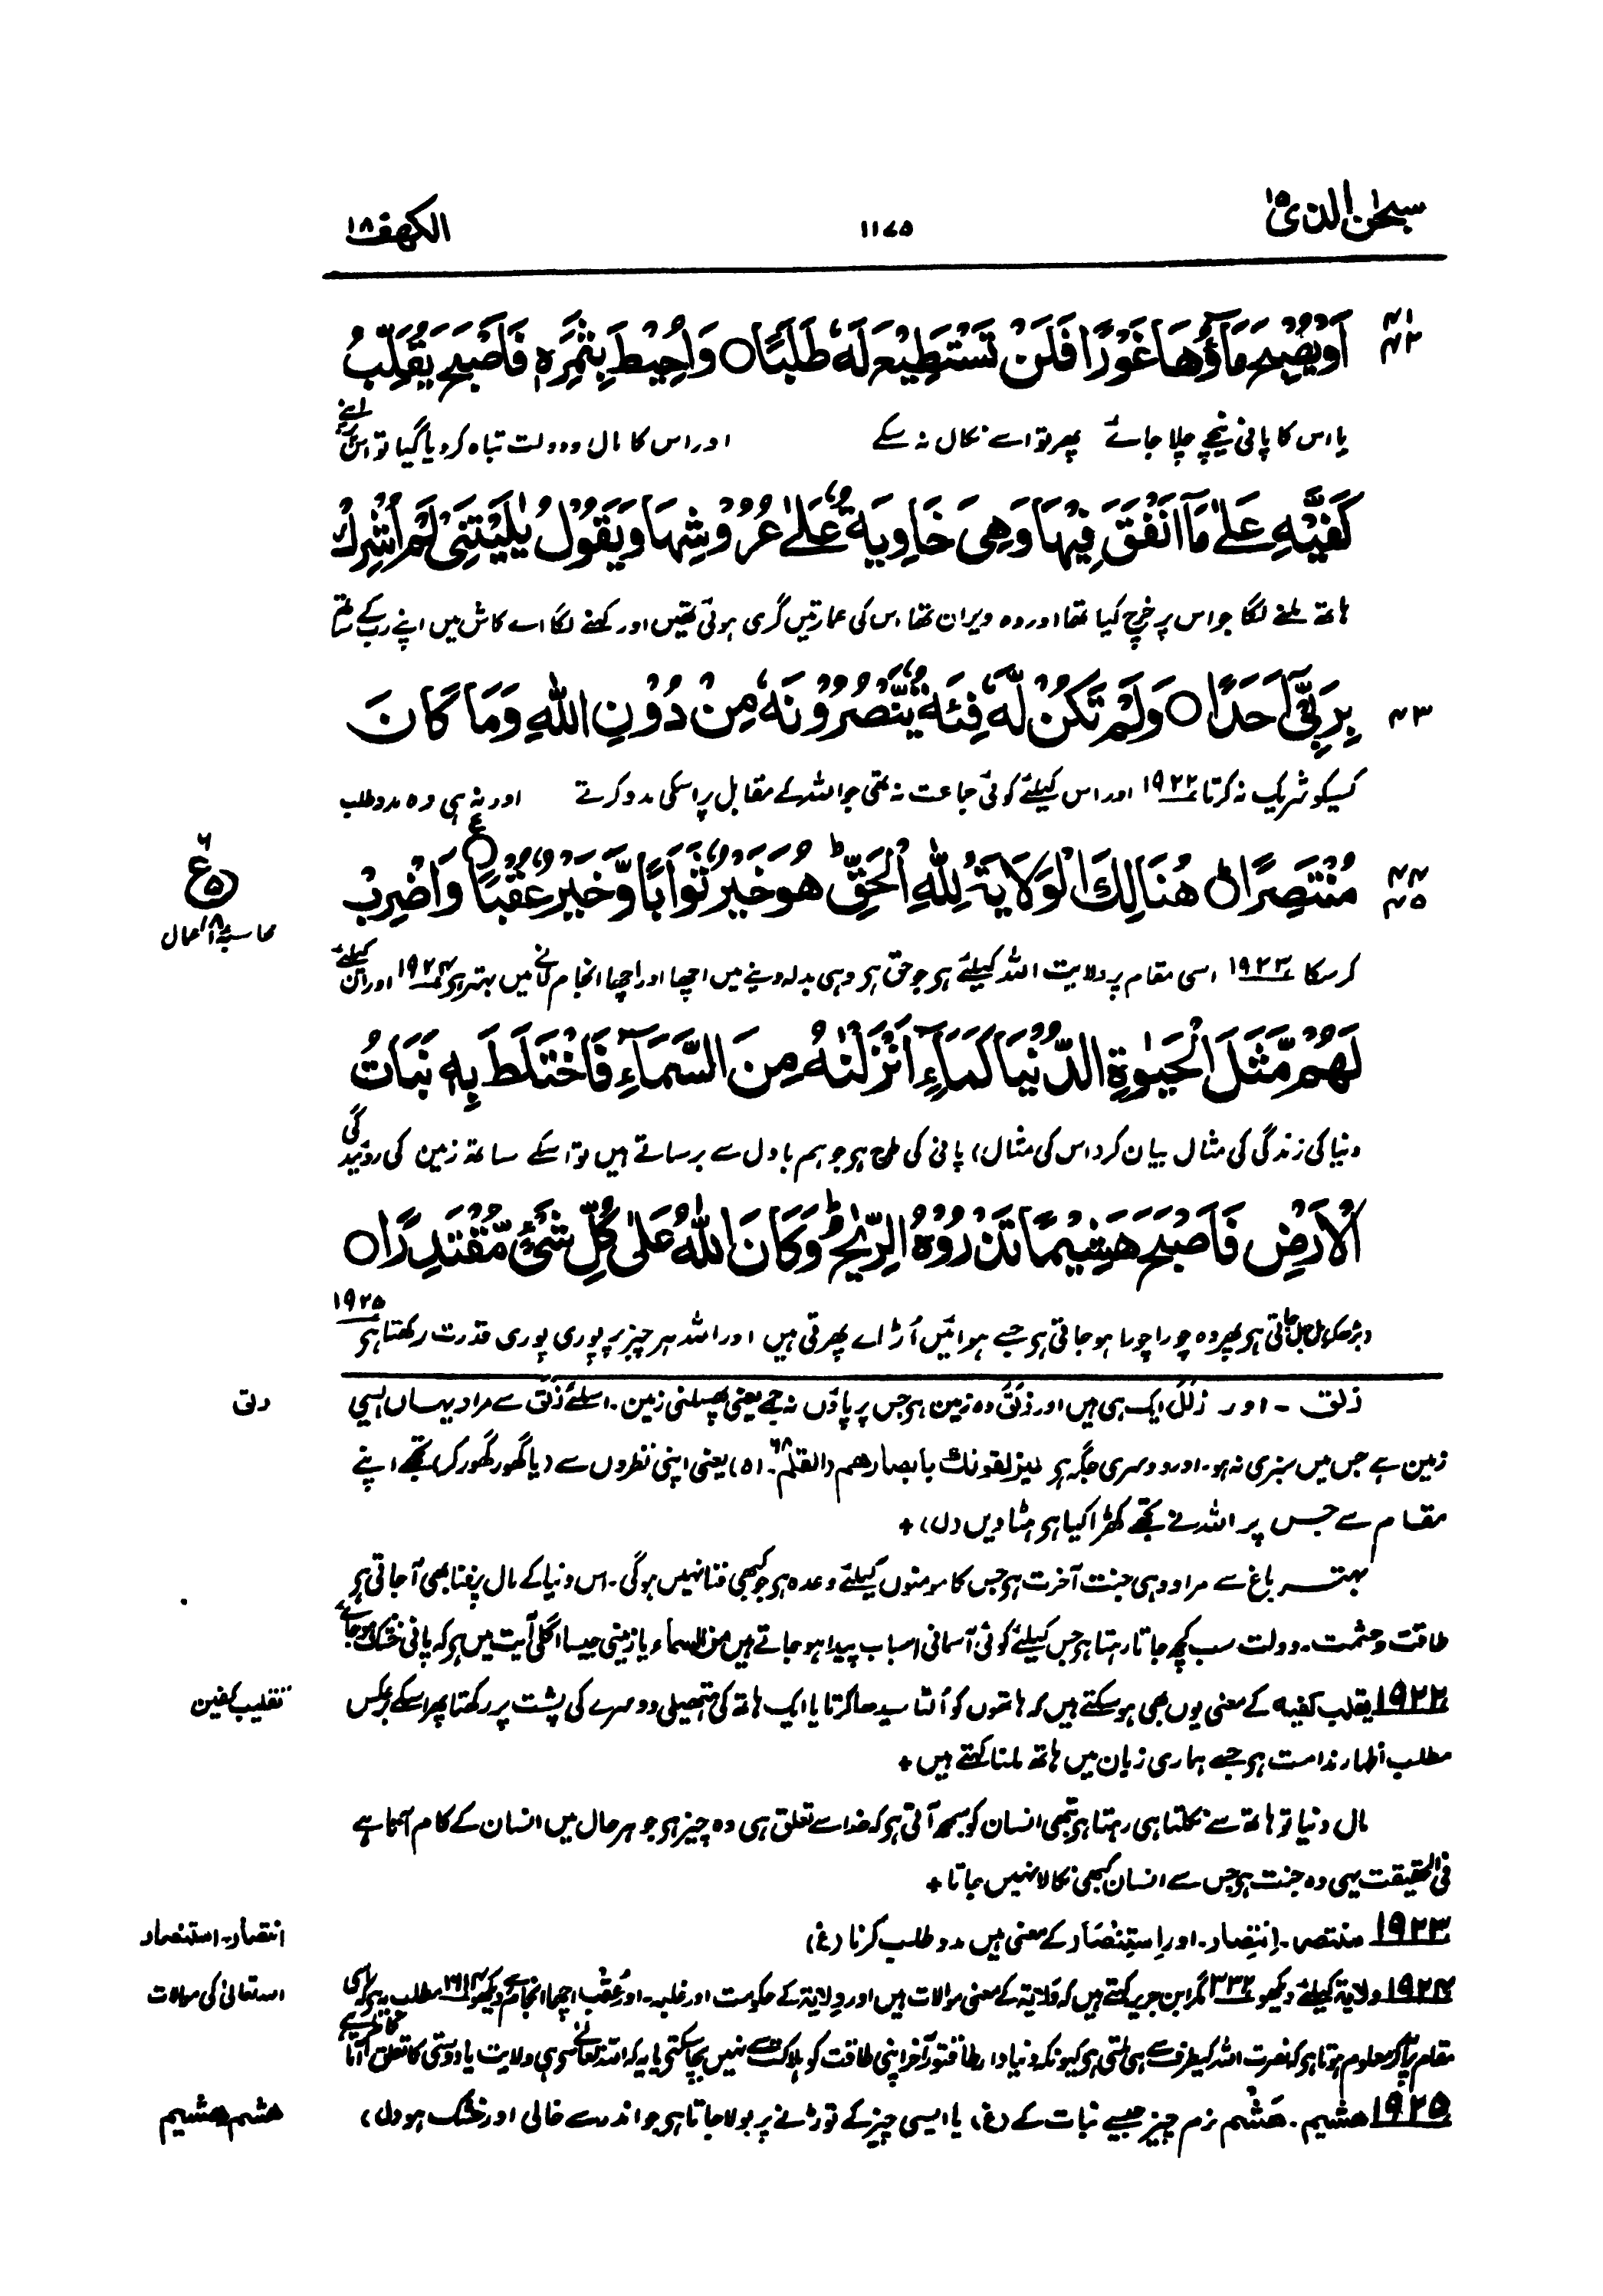 سبحٰن الذی ١٥
١١٧٥
الکهف ١٨
٤١
٤٢
اَوْ یُصْبِحَ مَآؤُهَا غَوْرًا فَلَنْ تَسْتَطِیْعَ لَهٗ طَلَبًا ○ وَ اُحِیْطَ بِثَمَرِهٖ فَاَصْبَحَ یُقَلِّبُ
یا اس کا پانی نیچے چلا جائے پھر تو اسے نکال نہ سکے اور اس کا مال و دولت تباہ کر دیا گیا تو اس پر اپنے
كَفَّیْهِ عَلٰى مَاۤ اَنْفَقَ فِیْهَا وَ هِیَ خَاوِیَةٌ عَلٰى عُرُوْشِهَا وَ یَقُوْلُ یٰلَیْتَنِیْ لَمْ اُشْرِكْ
ہاتھ ملنے لگا جو اس پر خرچ کیا تھا اور وہ ویران تھا اس کی عمارتیں گری ہوئی تھیں اور کہنے لگا اے کاش میں اپنے رب کے ساتھ
٤٣
بِرَبِّیْۤ اَحَدًا ○ وَ لَمْ تَكُنْ لَّهٗ فِئَةٌ یَّنْصُرُوْنَهٗ مِنْ دُوْنِ اللّٰهِ وَ مَا كَانَ
کسیکو شریک نہ کرتا ١٩٢٢ اور اس کیلئے کوئی جماعت نہ تھی جو اللہ کے مقابل پر اسکی مدد کرتے اور نہ ہی وہ مدد طلب
٤٤
٤٥
مُنْتَصِرًا ○ هُنَالِكَ الْوَلَایَةُ لِلّٰهِ الْحَقِّ ؕ هُوَ خَیْرٌ ثَوَابًا وَّ خَیْرٌ عُقْبًا ○ وَ اضْرِبْ
٦
ع
٥
١٨
محاسبۂ اعمال
کر سکا ١٩٢٣ اسی مقام پر ولایت اللہ کیلئے ہے جو حق ہے وہی بدلہ دینے میں اچھا اور اچھا انجام لانے میں بہتر ہے ١٩٢٤ اور ان کیلئے
لَهُمْ مَّثَلَ الْحَیٰوةِ الدُّنْیَا كَمَآءٍ اَنْزَلْنٰهُ مِنَ السَّمَآءِ فَاخْتَلَطَ بِهٖ نَبَاتُ
دنیا کی زندگی کی مثال بیان کر (اس کی مثال) پانی کی طرح ہے جو ہم بادل سے برساتے ہیں تو اسکے ساتھ زمین کی روئیدگی
الْاَرْضِ فَاَصْبَحَ هَشِیْمًا تَذْرُوْهُ الرِّیٰحُ ؕ وَ كَانَ اللّٰهُ عَلٰى كُلِّ شَیْءٍ مُّقْتَدِرًا ○
(بڑھ کر) مل جل جاتی ہے پھر وہ چورا چورا ہو جاتی ہے جسے ہوائیں اُڑاے پھرتی ہیں اور اللہ ہر چیز پر پوری پوری قدرت رکھتا ہے ١٩٢٥
زلق ۔ اور زلل ایک ہی ہیں اور زَلَق وہ زمین ہے جس پر پاؤں نہ جمے یعنی پھسلنی زمین ۔ اسلئے زَلَق سے مراد یہاں ایسی
زلق
زمین ہے جس میں سبزی نہ ہو ۔ اور دوسری جگہ ہے لیزلقونك بابصارهم (القلم ٦٨ ۔ ٥١) یعنی اپنی نظروں سے (یا گھور گھور کر) تجھے اپنے
مقام سے جس پر اللہ نے تجھے کھڑا کیا ہے ہٹا دیں (ل) +
بہتر باغ سے مراد وہی جنت آخرت ہے جس کا مومنوں کیلئے وعدہ ہے جو کبھی فنا نہیں ہوگی ۔ اس دنیا کے مال پر فنا بھی آجاتی ہے
طاقت و حشمت ۔ دولت سب کچھ جاتا رہتا ہے جس کیلئے کوئی آسمانی اسباب پیدا ہو جاتے ہیں من السماء یا زمینی جیسا اگلی آیت میں ہے کہ پانی خشک ہو جائے
١٩٢٢ یقلب کفیه کے معنی یوں بھی ہو سکتے ہیں کہ ہاتھوں کو اُلٹا سیدھا کرتا یا ایک ہاتھ کی ہتھیلی دوسرے کی پشت پر رکھتا پھر اسکے برعکس
تقلیب کفین
مطلب اظہار ندامت ہے جسے ہماری زبان میں ہاتھ ملنا کہتے ہیں +
مال دنیا تو ہاتھ سے نکلتا ہی رہتا ہے تبھی انسان کو سمجھ آتی ہے کہ خدا سے تعلق ہی وہ چیز ہے جو ہر حال میں انسان کے کام آتا ہے
فی الحقیقت یہی وہ جنت ہے جس سے انسان کبھی نکالا نہیں جاتا +
١٩٢٣ منتصر ۔ اِنْتِصار ۔ اور اِستِنْصَار کے معنی ہیں مدد طلب کرنا (غ)
انتصار ۔ استنصار
١٩٢٤ ولایة کیلئے دیکھو ٣٣٢ مگر ابن جریر کہتے ہیں کہ وَلایة کے معنی موالات ہیں اور وِلایة کے حکومت اور غلبہ ۔ اور عُقْب اچھا انجام ہے دیکھو مطلب یہ ہے کہ اسی
اللہ تعالیٰ کی موالات
مقام پر آکر معلوم ہوتا ہے کہ نصرت اللہ کیطرف سے ہی ملتی ہے کیونکہ دنیا دار طاقتور آخر اپنی طاقت کو ہلاکت سے نہیں بچا سکتی یا یہ کہ اللہ تعالیٰ سے ہی ولایت یا دوستی کا تعلق
١٩٢٥ هشیم ۔ هَشْم نرم چیز جیسے نبات کے (غ) یا ایسی چیز کے توڑنے پر بولا جاتا ہے جو اندر سے خالی اور خشک ہو (ل)
هشم هشیم